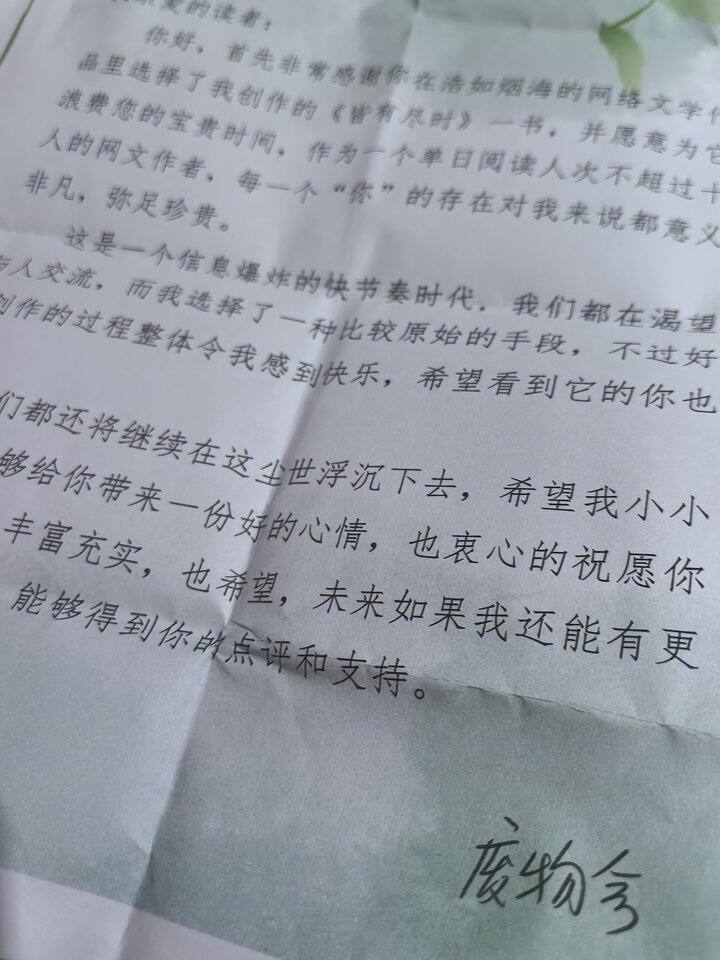 亲爱的读者：
你好，首先非常感谢你在浩如烟海的网络文学作
品里选择了我创作的《皆有尽时》一书，并愿意为它
浪费您的宝贵时间，作为一个单日阅读人次不超过十
人的网文作者，每一个“你”的存在对我来说都意义
非凡，弥足珍贵。
这是一个信息爆炸的快节奏时代，我们都在渴望
有人交流，而我选择了一种比较原始的手段，不过好
创作的过程整体令我感到快乐，希望看到它的你也
们都还将继续在这尘世浮沉下去，希望我小小
够给你带来一份好的心情，也衷心的祝愿你
丰富充实，也希望，未来如果我还能有更
能够得到你的点评和支持。
废物兮